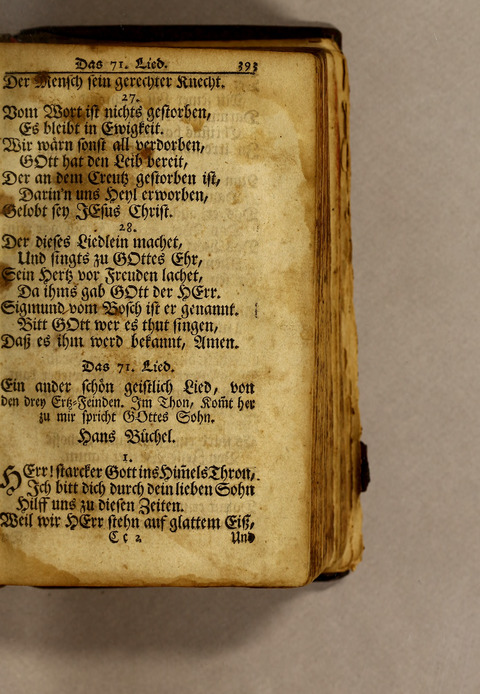 Das 71. Lied. 393
Der Mensch sein gerechter Knecht.
27.
Vom Wort ist nichts gestorben,
Es bleibt in Ewigkeit.
Wir wärn sonst all verdorben,
GOtt hat den Leib bereit,
Der an dem Creutz gestorben ist,
Darin'n uns Heyl erworben,
Gelobt sey JEsus Christ.
28.
Der dieses Liedlein machet,
Und singts zu GOttes Ehr,
Sein Hertz vor Freuden lachet,
Da ihms gab GOtt der HErr.
Sigmund vom Bosch ist er genannt.
Bitt GOtt wer es thut singen,
Daß es ihm werd bekannt, Amen.
Das 71. Lied.
Ein ander schön geistlich Lied, von
den drey Ertz-Feinden. Im Thon, Kom̃t her
zu mir spricht GOttes Sohn.
Hans Büchel.
1.
HErr! starcker Gott ins Him̃els Thron,
Ich bitt dich durch dein lieben Sohn
Hilff uns zu diesen Zeiten.
Weil wir HErr stehn auf glattem Eiß,
C c 2 Und